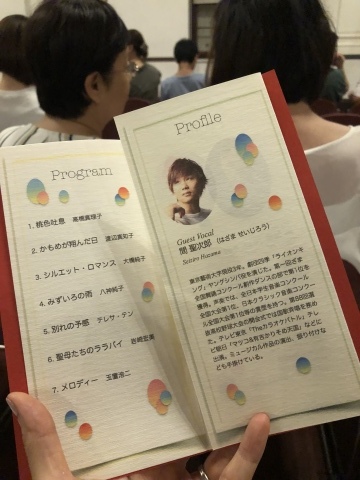 Program
1. 桃色吐息　髙橋真梨子
2. かもめが翔んだ日　渡辺真知子
3. シルエット・ロマンス　大橋純子
4. みずいろの雨　八神純子
5. 別れの予感　テレサ・テン
6. 聖母たちのララバイ　岩崎宏美
7. メロディー　玉置浩二
Profile
Guest Vocal
間 聖次郎　（はざま せいじろう）
Seijiro Hazama
東京藝術大学声楽科3年。劇団四季「ライオンキ
ング」ヤングシンバ役を演じた。第一回さき
全国舞踊コンクール創作ダンスの部で第1位を
獲得。声楽では、全日本学生音楽コンクール
全国大会第1位、日本クラシック音楽コンクー
ル全国大会第1位等の賞歴を持つ。第98回選
抜高校野球大会の開会式では国歌斉唱を務め
た。テレビ東京「THEカラオケバトル」テレ
ビ朝日「マツコ&有吉かりそめ天国」などに
出演。ミュージカル作品の演出、振り付けな
ども手掛けている。